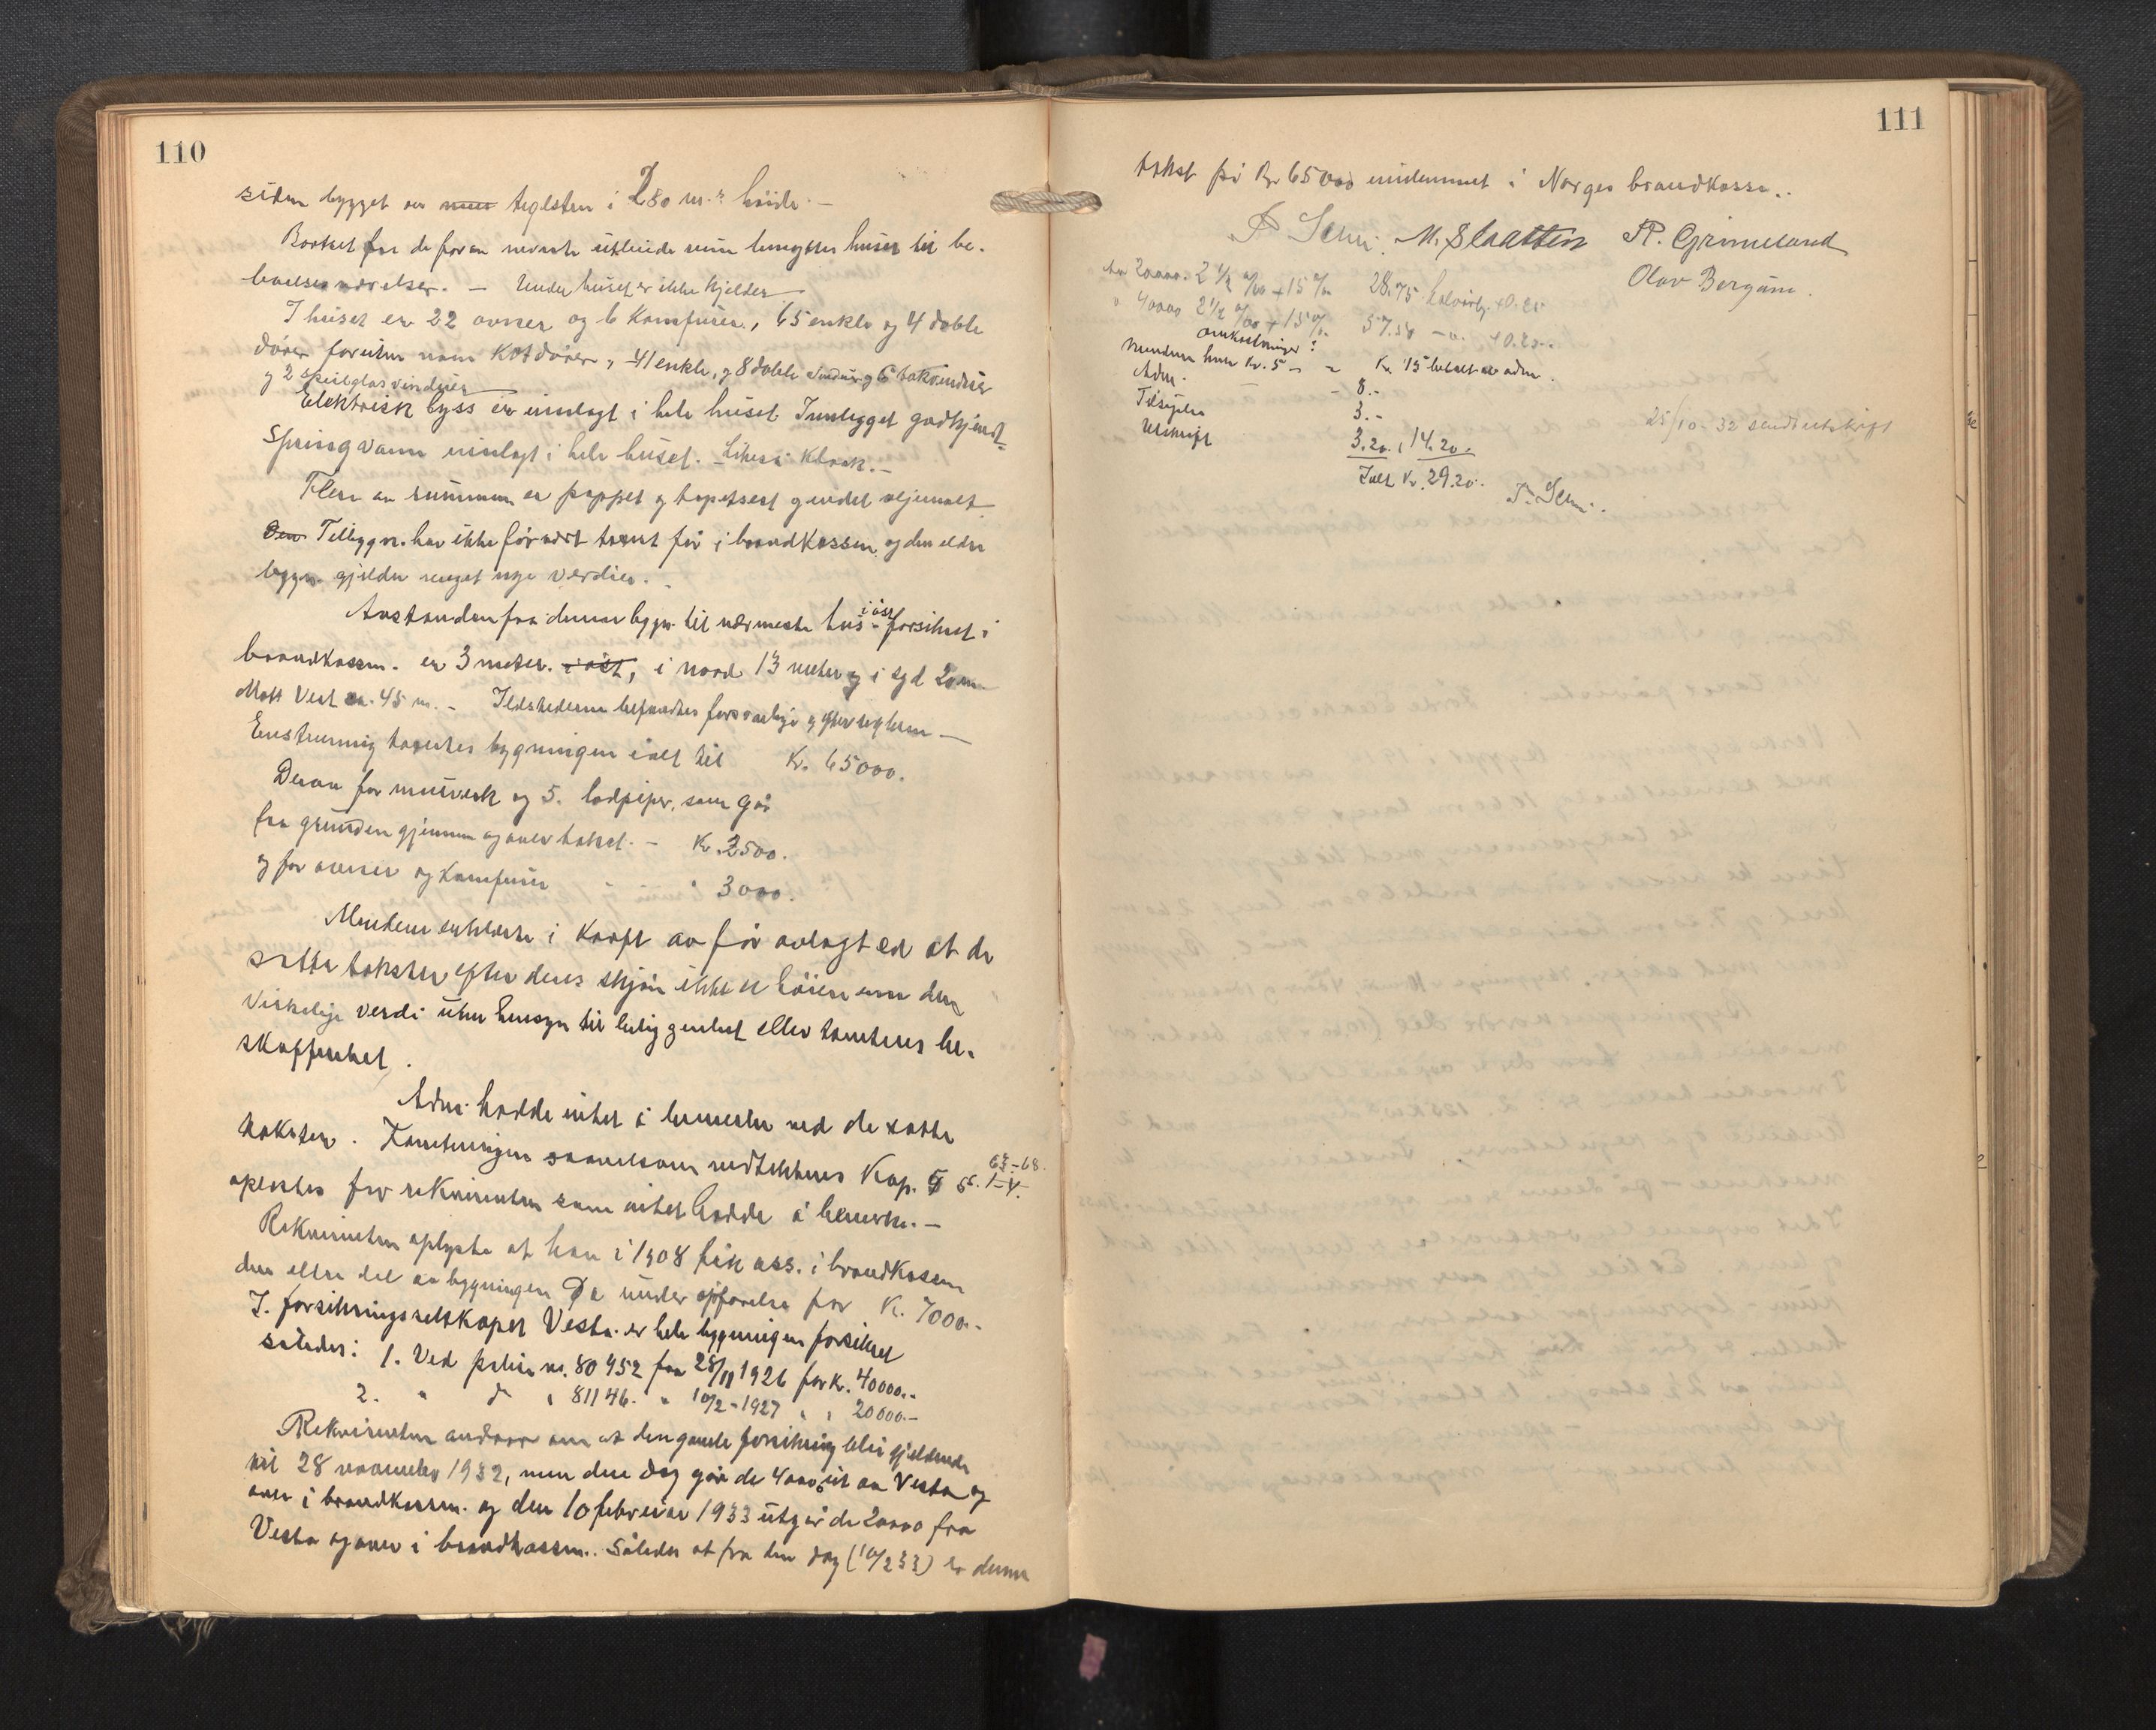 110
siden bygget av teglsten i 2.80 m.s höide. —
Bortset fra de foran nevnte utleide rum benyttes huset til be-
boelsesværelser. — Under huset er ikke kjelder
I huset er 22 ovner og 6 komfurer, 65 enkle og 4 doble
dører foruten nem Kotdører, 41 enkle, og 8 doble vinduer og 6 takvinduer
og 2 speilglasvinduer
Elektrisk lyss er innlagt i hele huset. Innlegget godkjendt.
Springvann innlagt i hele huset. Likeså kloak. —
Flere av rummene er pappet og tapetsert og endel oljemalt
Den Tilbygn. har ikke før vært taxert før i brandkassen og den eldre
bygn. gjelder meget nye verdier.
Avstanden fra denne bygn. til nærmeste hus i öst forsikret i
brandkassen er 3 meter i öst, i nord 13 meter og i syd 20 m.
Mott Vest ca. 45 m. — Ildstederne befandtes forsvarlige og efter reglerne —
Enstemmig taxertes bygningen i alt til Kr. 65000.
Derav for murverk og 5. lodpiper, som går
fra grunden gjennem og over taket. — Kr. 3500.
og for ovner og komfurer - " 3000.
Mendene erklærte i kraft av før avlagt ed at de
satte takster efter deres skjøn ikke er höiere enn den
virkelige verdi uten hensyn til beliggenhet eller tomtens be-
skaffenhet.
Adm. hadde intet å bemerke ved de satte
takster. Forretningen saavelsom vedtektenes Kap. 5 §§. 1-4. 63-68.
oplestes for rekvirenten som intet hadde å bemerke. —
Rekvirenten oplyste at han i 1908 fik ass. i brandkassen
den eldre del av bygningen da under opførelse for Kr. 7000.-
I forsikringsselskapet Vesta er hele bygningen forsikret
således: 1. Ved polise nr. 80452 fra 28/11 1926 for kr. 40000.-
2. " do " 81146. " 10/2-1927 " " 20000.-
Rekvirenten andrar om at den gamle forsikring blir gjeldende
til 28 november 1932, men den dag går de 40000 ut av Vesta og
over i brandkassen og den 10 februar 1933 utgår de 20000 fra
Vesta og over i brandkassen. Således at fra den dag (10/2 33) er denne
111
takst på Kr. 65000 innlemmet i Norges brandkasse..
P. Schei. M. Slaatten R. Grimeland
Olav Bergum.
Av 20000. 2 1/2 o/oo + 15 % 28.75 halvårlig + 0.25
" 40000 2 1/2 o/oo + 15 % 57.50 — " + 0.25..
omkostninger:
Mendene hver Kr. 5 - = Kr. 15 betalt av adm.
Adm. - 8.-
Tilsigelse 3.-
Utskrift 3.20, 14.20.
Ialt Kr. 29.20.
P. Schei.
25/10-32 sendt utskrift